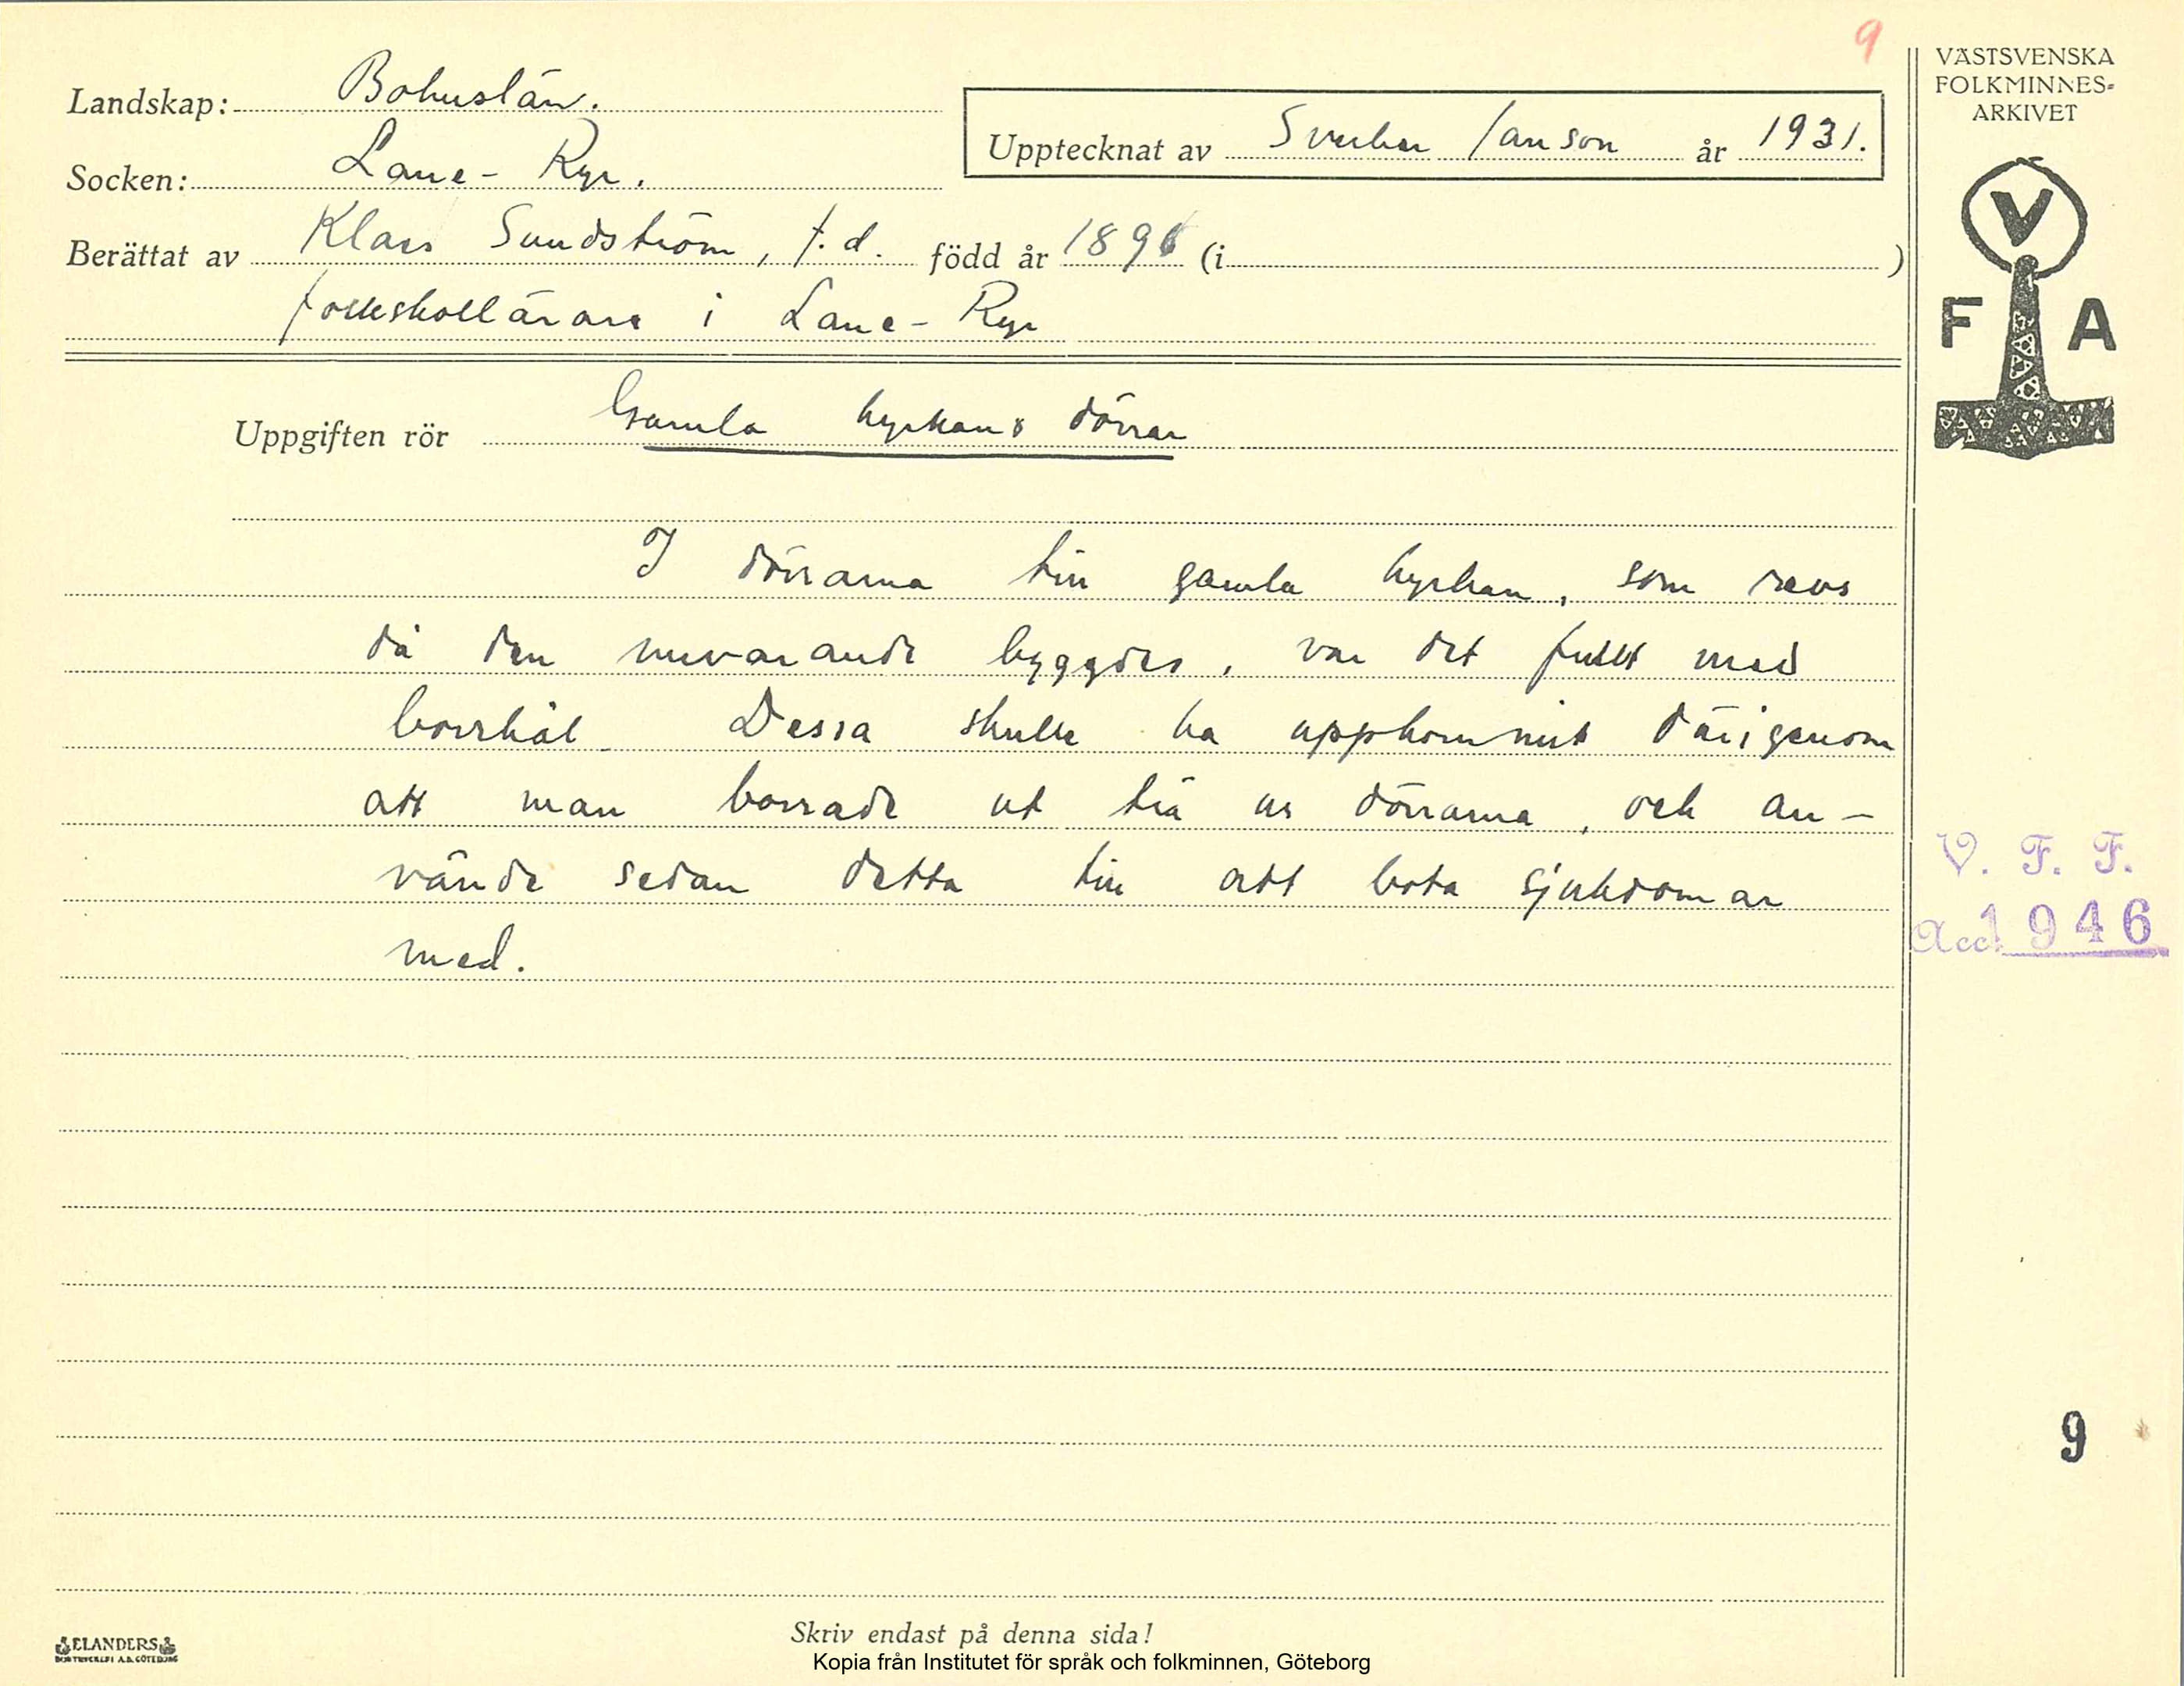 9
VÄSTSVENSKA
FOLKMINNES-
ARKIVET
Landskap: Bohuslän.
Upptecknat av Sverker Janson år 1931.
Socken: Lane-Ryr.
Berättat av Klaes Sundström, f.d. född år 1896 (i )
folkskollärare i Lane-Ryr
V
F A
Uppgiften rör Gamla kyrkans dörrar
I dörrarna till gamla kyrkan, som revs
då den nuvarande byggdes, var det fullt med
borrhål. Dessa skulle ha uppkommit därigenom
att man borrade ut trä ur dörrarna, och an-
vände sedan detta till att bota sjukdomar
med.
V. F. F.
Acc. 1946
9
Skriv endast på denna sida!
ELANDERS
BOKTRYCKERI A.B. GÖTEBORG
Kopia från Institutet för språk och folkminnen, Göteborg